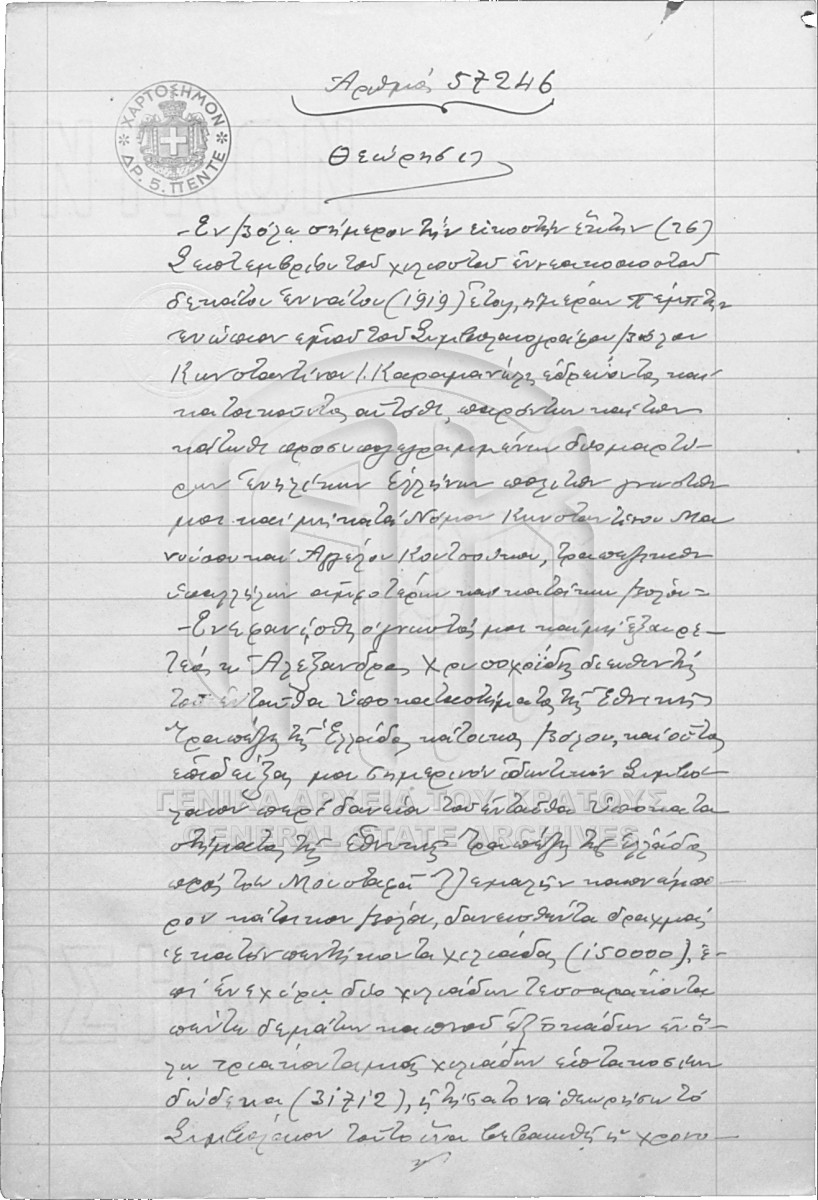 Αριθμός 57246
ΧΑΡΤΟΣΗΜΟΝ
ΔΡ. 5. ΠΕΝΤΕ
Θεώρησις
-Εν Βόλω σήμερον την εικοστήν έκτην (26)
Σεπτεμβρίου του χιλιοστού εννεακοσιοστού
δεκάτου εννάτου (1919) έτους, ημέραν Πέμπτην
ενώπιον εμού του Συμβολαιογράφου Βόλου
Κωνσταντίνου Ι. Καραμανώλη εδρεύοντος και
κατοικούντος αυτόθι, παρόντων και των
κάτωθι προσυπογεγραμμένων δύο μαρτύ-
ρων ενηλίκων Ελλήνων πολιτών γνωστών
μοι και μη κατά Νόμον Κωνσταντίνου Μα
νούσου και Αγγέλου, τραπεζιτικών
υπαλλήλων αμφοτέρων και κατοίκων Βόλου=
-Ενεφανίσθη ο γνωστός μοι και μη εξαιρε-
τέος κ. Αλέξανδρος Χρυσοχοΐδης διευθυντής
του ενταύθα Υποκαταστήματος της Εθνικής
Τραπέζης της Ελλάδος κάτοικος Βόλου, και ούτος
επιδείξας μοι σημερινόν ιδιωτικόν Συμβό-
λαιον περί δανείου του ενταύθα Υποκατα
στήματος της Εθνικής Τραπέζης της Ελλάδος
προς τον Μουσταφά καπνέμπο-
ρον κάτοικον Βόλου, δανεισθέντα δραχμάς
εκατόν πεντήκοντα χιλιάδας (150000), ε-
πί ενεχύρω δύο χιλιάδων τεσσαράκοντα
πέντε δεμάτων καπνού εξ οκάδων εν ό-
λω τριάκοντα μιας χιλιάδων επτακοσίων
δώδεκα (31712), ητήσατο να θεωρήσω το
Συμβόλαιον τούτο ίνα βεβαιωθή η χρονο-
ΓΕΝΙΚΑ ΑΡΧΕΙΑ ΤΟΥ ΚΡΑΤΟΥΣ
GENERAL STATE ARCHIVES